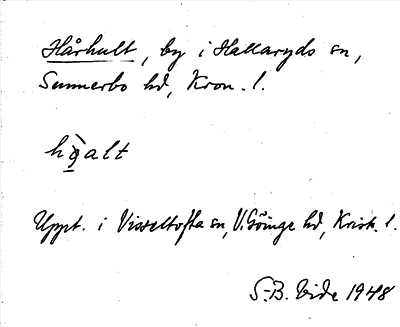 Hårhult, by i Hallaryds sn,
Sunnerbo hd, Kron. l.
hò̱alt
Uppt. i Visseltofta sn, V. Göinge hd, Krist. l.
S.-B. Vide 1948